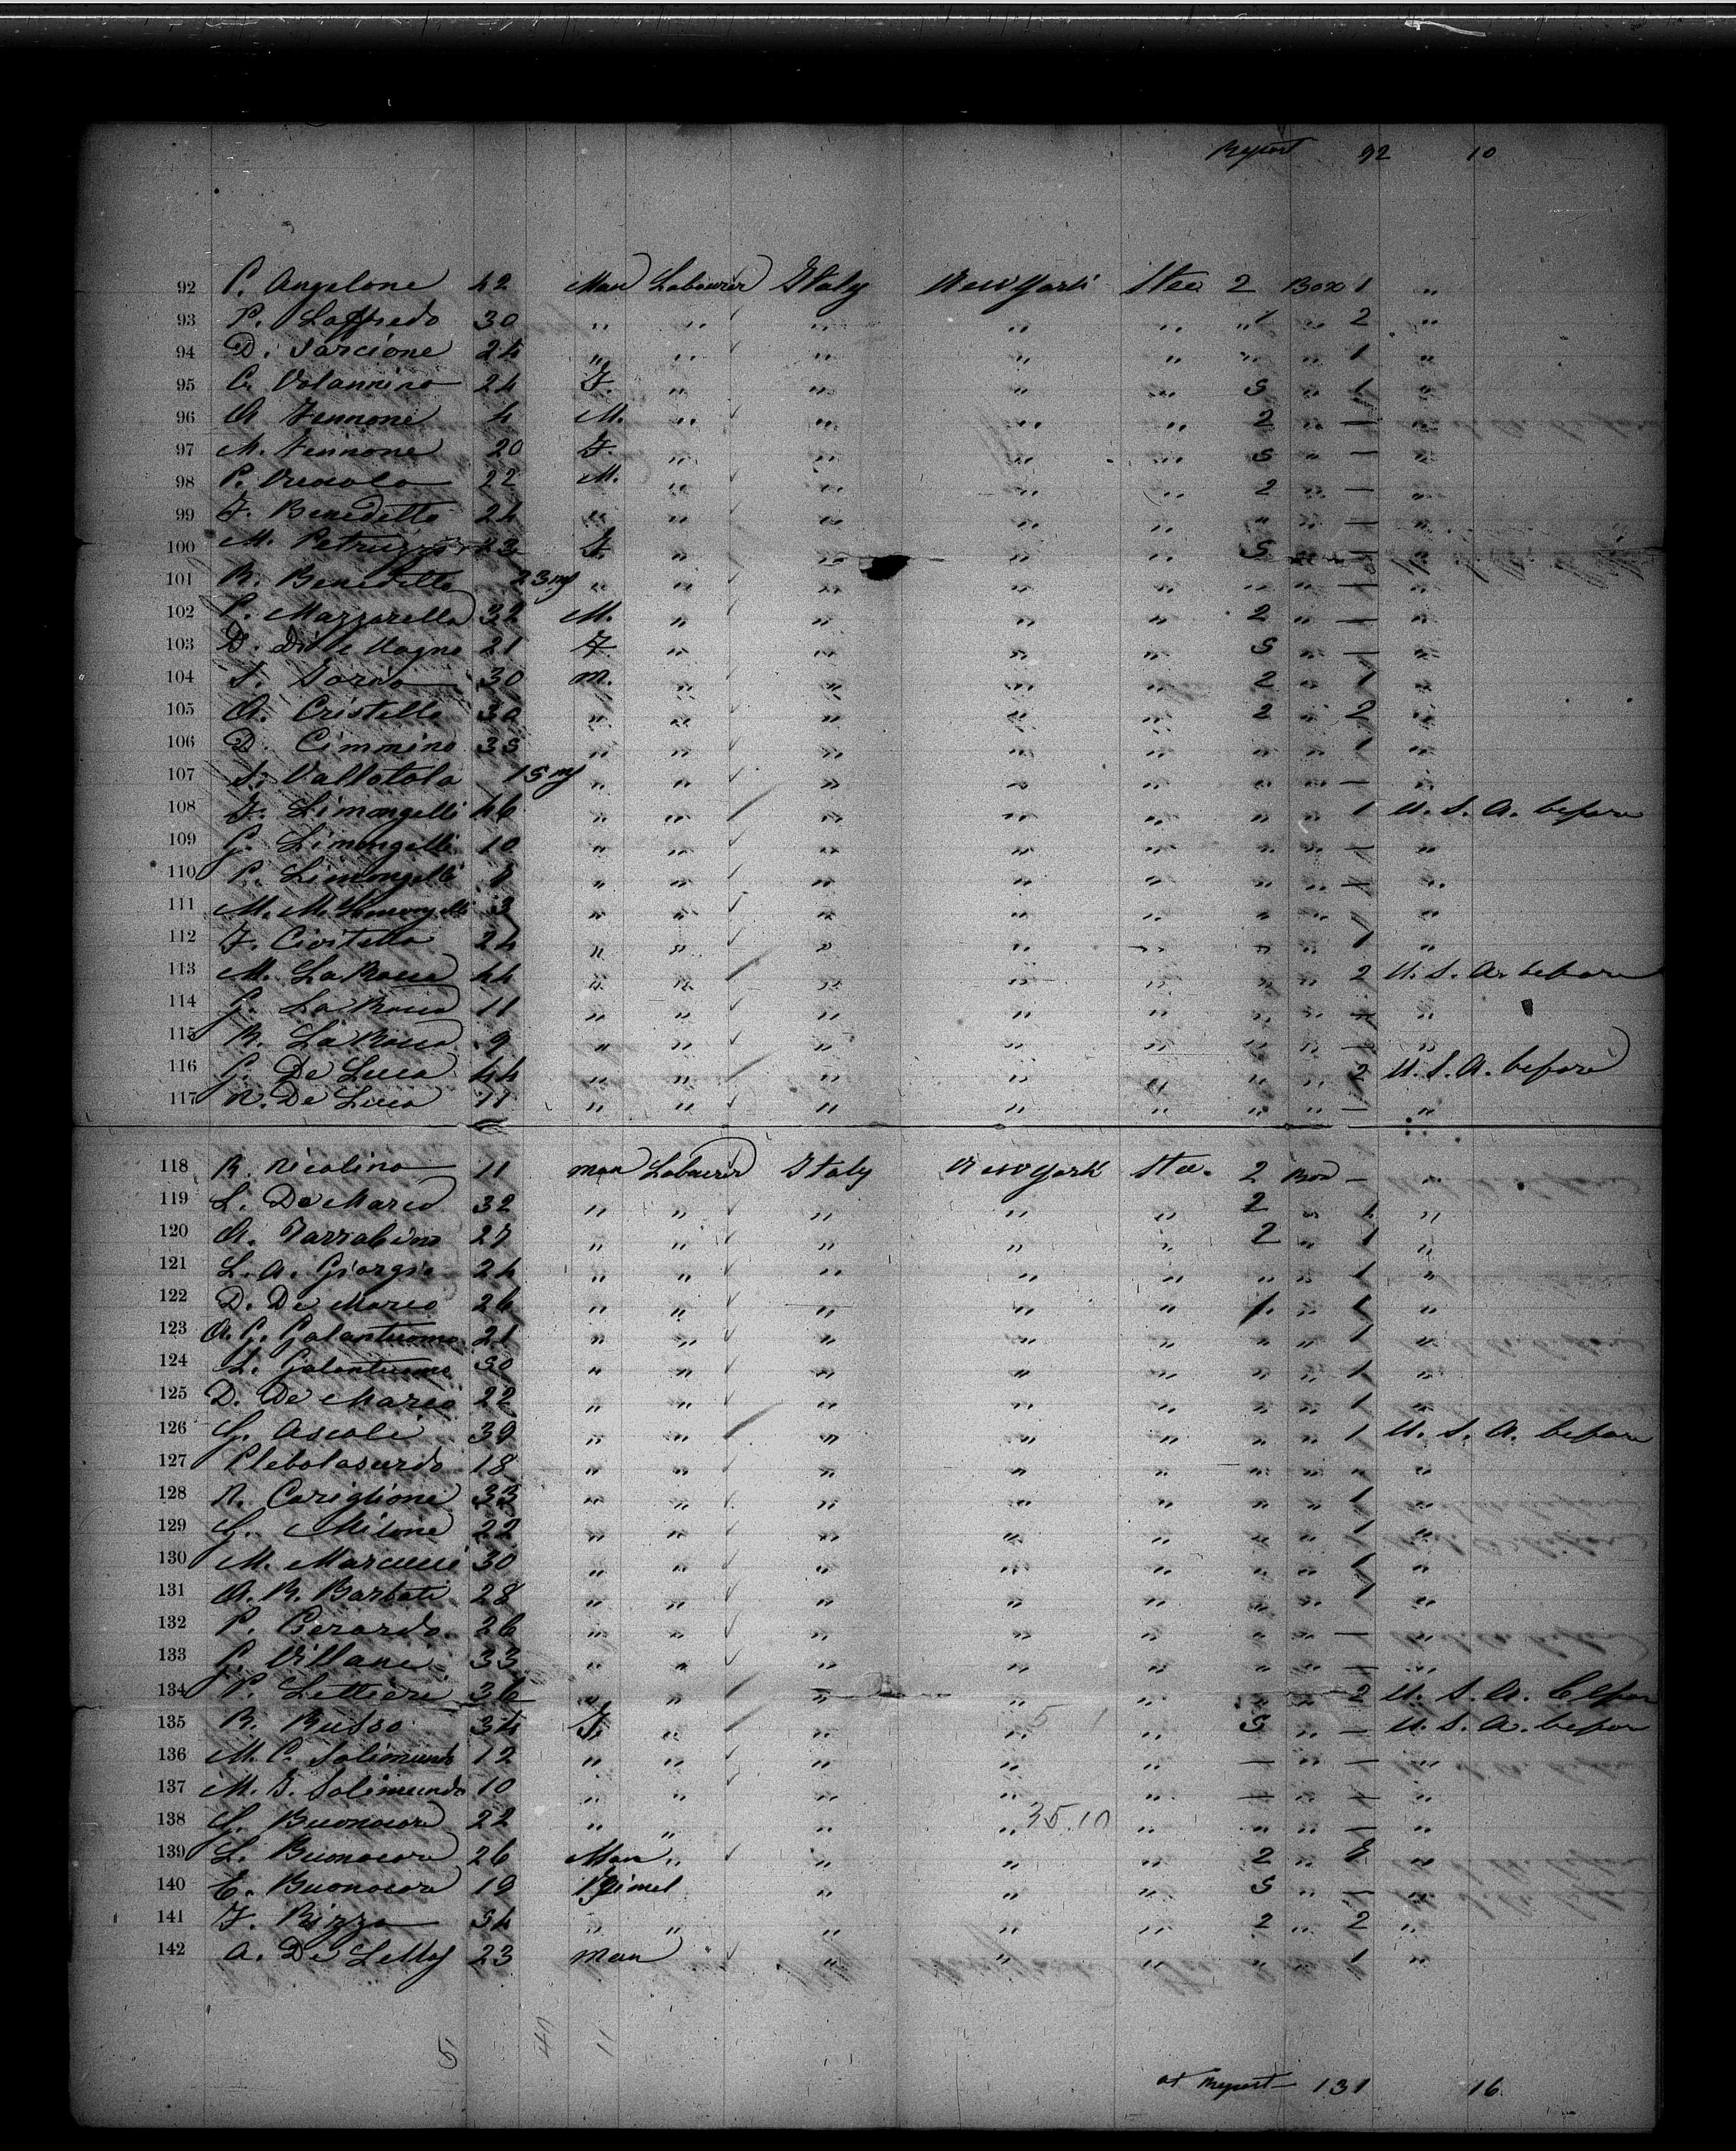 Report 92 10
92 P. Angelone 42 Man Labourer Italy New York Stee 2 Box 1 "
93 P. Laffredo 30 " " " " " " 1 " 2 "
94 D. Sarcione 24 " " " " " " " 1 "
95 C. Volannino 24 F. " " " " S " 1 "
96 A. Iennone 4 M. " " " " 2 " — "
97 M. Iennone 20 F. " " " " S " — "
98 P. 22 M. " " " " 2 " — "
99 F. Benedetto 24 " " " " " " " — "
100 M. 23 F. " " " " S " —
101 R. Benedetto 23 " " " " " " " — "
102 P. Mazzarella 32 M. " " " " 2 " — "
103 D. 21 F. " " " " S " — "
104 30 m. " " " " 2 " 1 "
105 A. Cristello 30 " " " " " 2 " 2 "
106 D. Cimmino 35 " " " " " " " 1 "
107 S. Vallotola 15 " " " " " " " — "
108 F. Limongelli 46 " " " " " " " 1 U. S. A. before
109 G. Limongelli 10 " " " " " " " — "
110 P. Limongelli " " " " " " " — "
111 M. M. Limongelli 3 " " " " " " " "
112 F. Civitella 24 " " " " " " " 1 "
113 M. La Rocca 44 " " " " " " " 2 U. S. A. before
114 G. La Rocca 11 " " " " " " " — "
115 R. La Rocca 9 " " " " " " " — "
116 G. De Luca 44 " " " " " " " 2 U. S. A. before
117 N. De Luca 11 " " " " " " " — "
118 R. Nicolino 11 man Labourer Italy New York Stee. 2 Box — "
119 L. De Marco 32 " " " " " 2 " 1 "
120 A. 27 " " " " " 2 " 1 "
121 L. A. Giorgio 24 " " " " " " " 1 "
122 D. De Marco 26 " " " " " 1 " 1 "
123 A. G. Galantuomo 21 " " " " " " " 1 "
124 L. Galantuomo " " " " " " " 1 "
125 D. De Marco 22 " " " " " " " 1 "
126 G. Ascoli 39 " " " " " " " 1 U. S. A. before
127 18 " " " " " " " " "
128 N. Cariglione 33 " " " " " " " 1 "
129 G. Milone 22 " " " " " " " 1 "
130 M. Marcucci 30 " " " " " " " 1 "
131 A. R. Barbati 28 " " " " " " " 1 "
132 P. Gerardo 26 " " " " " " " — "
133 G. Villane 33 " " " " " " " — "
134 P. Lettieri 36 " " " " " " " 2 U. S. A. before
135 R. Russo 34 F. " " " " S " — U. S. A. before
136 M. C. Solimundo 12 " " " " " — " — "
137 M. G. Solimundo 10 " " " " " — " — "
138 G. Buonocore 22 " " " 35.10 " " " — "
139 L. Buonocore 26 Man " " " " 2 " "
140 E. Buonocore 19 " " " S " — "
141 F. Rizzo 34 " " " " " 2 " 2 "
142 A. De Lellis 23 man " " " " " 1 "
5 40 11
at Report 131 16